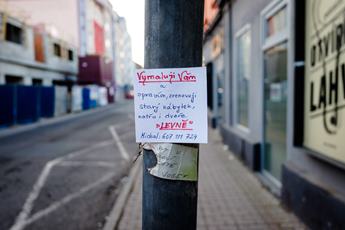 Vymaluji Vám
a
opravím, zrenovuji
starý nábytek,
natřu i dveře
"LEVNĚ"
Michal: 607 111 729
OTEVÍR
LAH